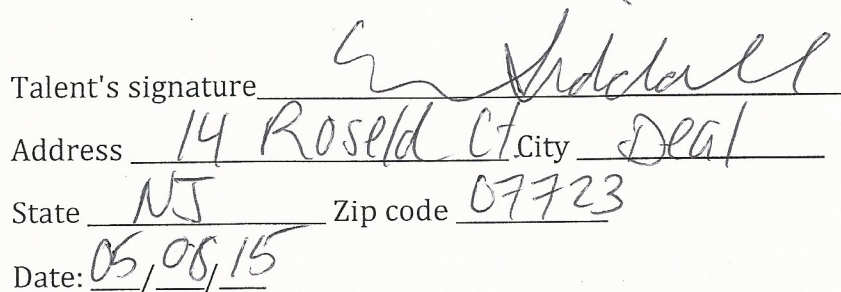 Talent's signature Siddall
Address 14 Roseld Ct City Deal
State NJ Zip code 07723
Date: 05/08/15